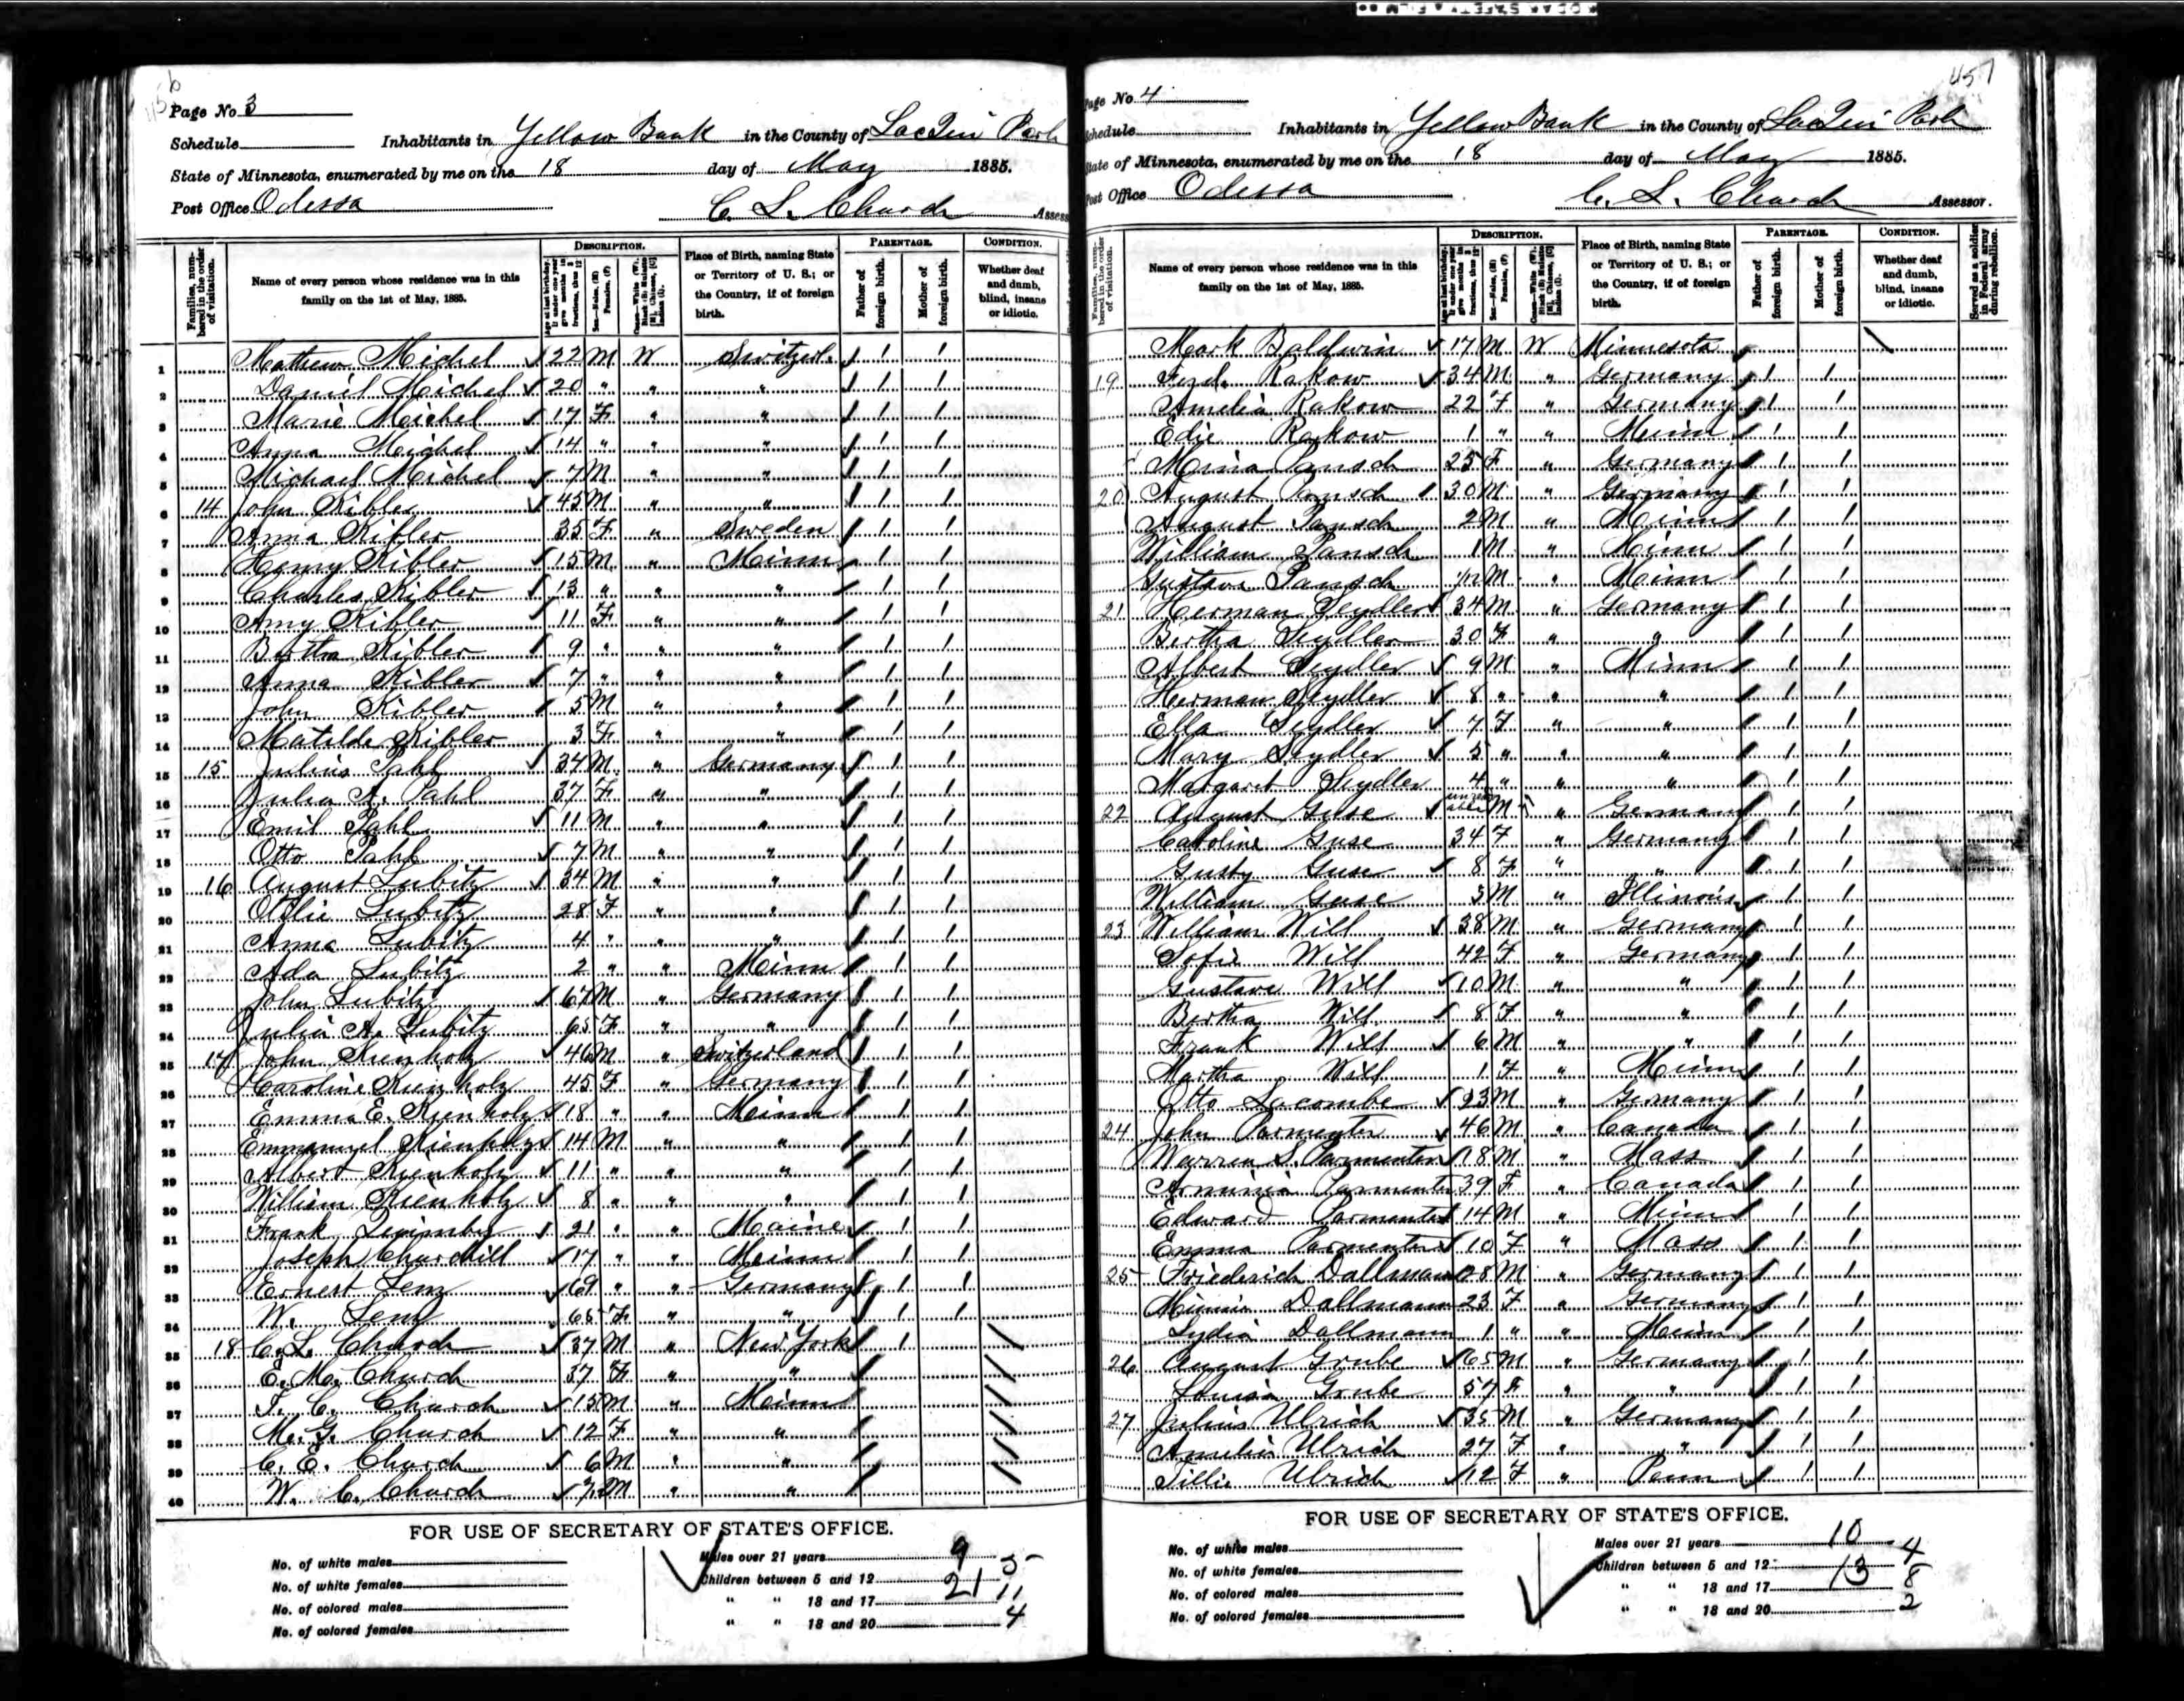 Page No 3
Schedule Inhabitants in Yellow Bank in the County of Lac Qui Parle
State of Minnesota, enumerated by me on the 18 day of May 1885.
Post Office Odessa C. L. Church Assess
Families, numbered in the order of visitation.
Name of every person whose residence was in this family on the 1st of May, 1885.
DESCRIPTION.
Place of Birth, naming State or Territory of U. S.; or the Country, if of foreign birth.
PARENTAGE.
Father of foreign birth.
Mother of foreign birth.
CONDITION.
Whether deaf and dumb, blind, insane or idiotic.
1 Mathew Michel 22 M W Switzerl. 1 1
2 Daniel Michel 20 " " " 1 1
3 Marie Michel 17 F " " 1 1
4 Anna Michel 14 " " " 1 1
5 Michael Michel 7 M " " 1 1
6 14 John Kibler 45 M " " 1 1
7 Anna Kibler 35 F " Sweden 1 1
8 Henry Kibler 15 M " Minn 1 1
9 Charles Kibler 13 " " " 1 1
10 Amy Kibler 11 F " " 1 1
11 Bertha Kibler 9 " " " 1 1
12 Anna Kibler 7 " " " 1 1
13 John Kibler 5 M " " 1 1
14 Matilda Kibler 3 F " " 1 1
15 15 Julius Pahl 37 M " Germany 1 1
16 Julia A. Pahl 37 F " " 1 1
17 Emil Pahl 11 M " " 1 1
18 Otto Pahl 7 M " " 1 1
19 16 August Lubitz 34 M " " 1 1
20 Ottlie Lubitz 28 F " " 1 1
21 Anna Lubitz 4 " " " 1 1
22 Ada Lubitz 2 " " Minn 1 1
23 John Lubitz 67 M " Germany 1 1
24 Julia A. Lubitz 65 F " " 1 1
25 17 John Kienholz 46 M " Switzerland 1 1
26 Caroline Kienholz 45 F " Germany 1 1
27 Emma E. Kienholz 18 " " Minn 1 1
28 Emmanuel Kienholz 14 M " " 1 1
29 Albert Kienholz 11 " " " 1 1
30 William Kienholz 8 " " " 1 1
31 Frank 21 " " Maine 1 1
32 Joseph Churchill 17 " " Minn 1 1
33 Ernest Lenz 69 " " Germany 1 1
34 W. Lenz 65 F " " 1 1
35 18 C. L. Church 37 M " New York 1
36 E. M. Church 37 F " "
37 F. C. Church 15 M " Minn
38 M. G. Church 12 F " "
39 C. E. Church 6 M " "
40 W. C. Church M " "
FOR USE OF SECRETARY OF STATE'S OFFICE.
No. of white males
No. of white females
No. of colored males
No. of colored females
Males over 21 years 9 5
Children between 5 and 12 21 11
" " 18 and 17
" " 18 and 20 4
457
Page No 4
Schedule Inhabitants in Yellow Bank in the County of Lac Qui Parle
State of Minnesota, enumerated by me on the 18 day of May 1885.
Post Office Odessa C. L. Church Assessor.
Families, numbered in the order of visitation.
Name of every person whose residence was in this family on the 1st of May, 1885.
DESCRIPTION.
Place of Birth, naming State or Territory of U. S.; or the Country, if of foreign birth.
PARENTAGE.
Father of foreign birth.
Mother of foreign birth.
CONDITION.
Whether deaf and dumb, blind, insane or idiotic.
Served as a soldier in Federal army during rebellion.
Mark Baldwin 17 M W Minnesota
19 Ferd. Rakow 34 M " Germany 1 1
Amelia Rakow 22 F " Germany 1 1
Edie Rakow 1 " " Minn 1 1
Mina Pansch 25 F " Germany 1 1
20 August Pansch 30 M " Germany 1 1
August Pansch 2 M " Minn 1 1
William Pansch 1 M " Minn 1 1
Gustave Pansch 1/12 M " Minn 1 1
21 Herman Seydler 34 M " Germany 1 1
Bertha Seydler 30 F " " 1 1
Albert Seydler 9 M " Minn 1 1
Herman Seydler 8 " " " 1 1
Ella Seydler 7 F " " 1 1
Mary Seydler 5 " " " 1 1
Margaret Seydler 4 " " " 1 1
22 August Guse M " Germany 1 1
Caroline Guse 34 F " Germany 1 1
Gusty Guse 8 F " " 1 1
William Guse 3 M " Illinois 1 1
23 William Will 38 M " Germany 1 1
Sofie Will 42 F " Germany 1 1
Gustave Will 10 M " " 1 1
Bertha Will 8 F " " 1 1
Frank Will 6 M " " 1 1
Martha Will 1 F " Minn 1 1
Otto Lacombe 23 M " Germany 1 1
24 John Parmenter 46 M " Canada 1 1
Warren S. Parmenter 18 M " Mass 1 1
Arminia Parmenter 39 F " Canada 1 1
Edward Parmenter 14 M " Minn 1 1
Emma Parmenter 10 F " Mass 1 1
25 Friederich Dallmann 28 M " Germany 1 1
Minnie Dallmann 23 F " Germany 1 1
Lydia Dallmann 1 " " Minn 1 1
26 August Grube 65 M " Germany 1 1
Louisa Grube 57 F " " 1 1
27 Julius Ulrich 35 M " Germany 1 1
Amelia Ulrich 27 F " " 1 1
Tillie Ulrich 12 F " Penn 1 1
FOR USE OF SECRETARY OF STATE'S OFFICE.
No. of white males
No. of white females
No. of colored males
No. of colored females
Males over 21 years 10 4
Children between 5 and 12 13 8
" " 18 and 17
" " 18 and 20 2